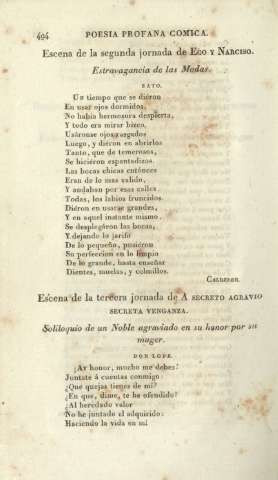 494 POESIA PROFANA COMICA.
Escena de la segunda jornada de ECO Y NARCISO.
Estravagancia de las Modas.
BATO.
UN tiempo que se diéron
En usar ojos dormidos,
No habia hermosura despierta,
Y todo era mirar bizco.
Usáronse ojos rasgados
Luego, y diéron en abrirlos
Tanto, que de temerosos,
Se hiciéron espantadizos.
Las bocas chicas entónces
Eran de lo mas valido,
Y andaban por esas calles
Todas, los labios fruncidos.
Diéron en usarse grandes,
Y en aquel instante mismo
Se desplegáron las bocas,
Y dejando lo jarifo
De lo pequeño, pusiéron
Su perfeccion en lo limpio
De lo grande, hasta enseñar
Dientes, muelas, y colmillos.
CALDERON.
Escena de la tercera jornada de A SECRETO AGRAVIO
SECRETA VENGANZA.
Soliloquio de un Noble agraviado en su honor por su
muger.
DON LOPE.
¡Ay honor, mucho me debes!
Juntate á cuentas conmigo:
¿Que quejas tienes de mí?
¿En que, dime, te he ofendido?
¿Al heredado valor
No he juntado el adquirido,
Haciendo la vida en mí